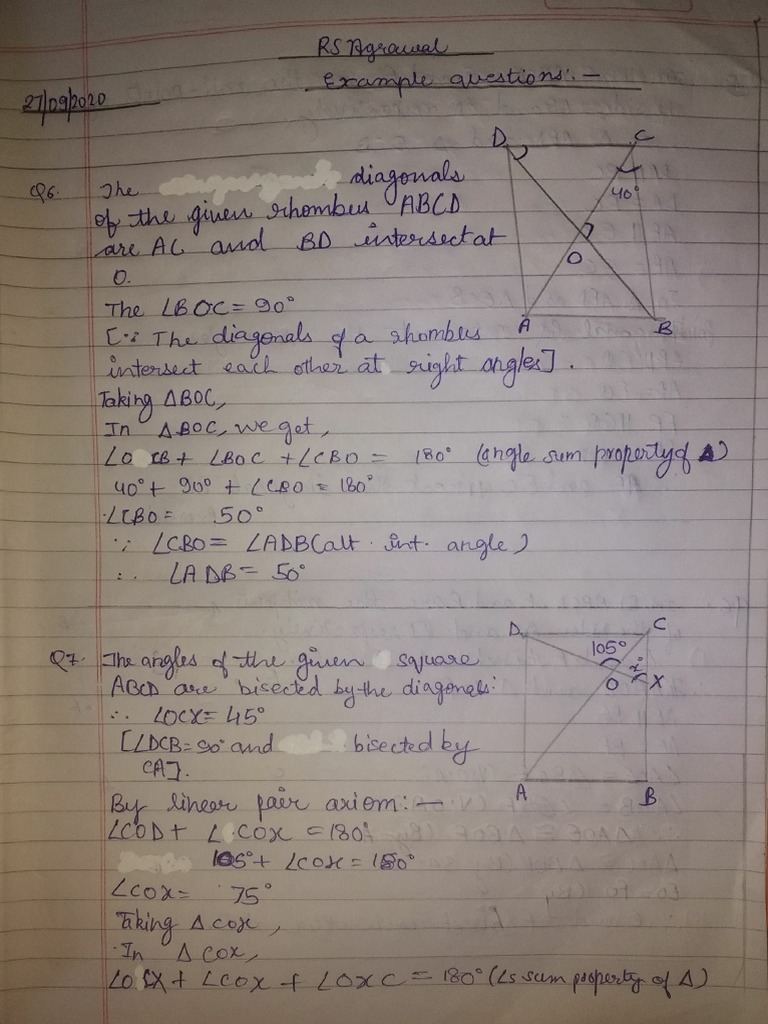 RS Agrawal
Example questions:-
27/09/2020
D C
Q6. The diagonals
40°
of the given rhombus ABCD
are AC and BD intersect at
O
O.
The ∠BOC = 90°
A B
[∵ The diagonals of a rhombus
intersect each other at right angles].
Taking ΔBOC,
In ΔBOC, we get,
∠OCB + ∠BOC + ∠CBO = 180° (angle sum property of Δ)
40° + 90° + ∠CBO = 180°
∠CBO = 50°
∵ ∠CBO = ∠ADB (alt. int. angle)
∴ ∠ADB = 50°
D C
Q7. The angles of the given square
105° x°
ABCD are bisected by the diagonals:
O X
∴ ∠OCX = 45°
[∠DCB = 90° and bisected by
CA].
A B
By linear pair axiom:—
∠COD + ∠COX = 180°
105° + ∠COX = 180°
∠COX = 75°
Taking Δ COX,
In Δ COX,
∠OCX + ∠COX + ∠OXC = 180° (∠s sum property of Δ)